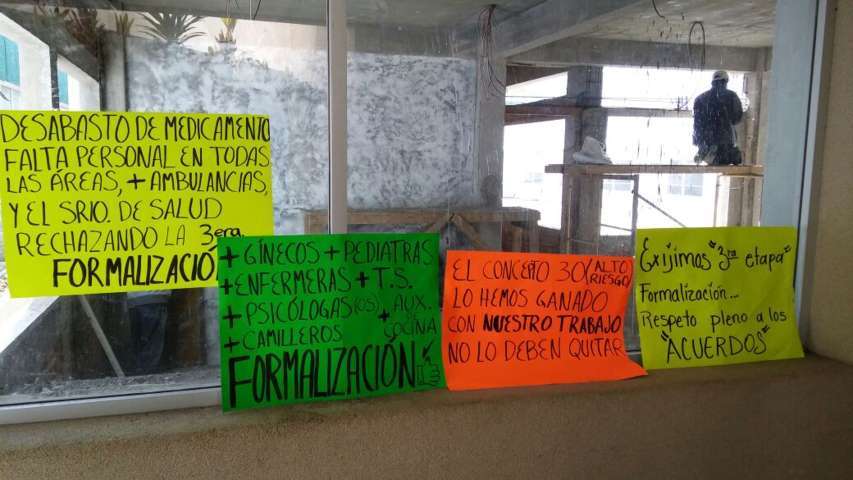 DESABASTO DE MEDICAMENTO
FALTA PERSONAL EN TODAS
LAS ÁREAS, + AMBULANCIAS,
Y EL SRIO. DE SALUD
RECHAZANDO LA 3era.
FORMALIZACIÓ
+ GÍNECOS + PEDIATRAS
+ ENFERMERAS + T.S.
+ PSICÓLOGAS(OS) + AUX. DE COCINA
+ CAMILLEROS
FORMALIZACIÓN
EL CONCEPTO 30 (ALTO RIESGO)
LO HEMOS GANADO
CON NUESTRO TRABAJO
NO LO DEBEN QUITAR
Exíjimos "3ra etapa"
Formalización...
Respeto pleno a los
"ACUERDOS"